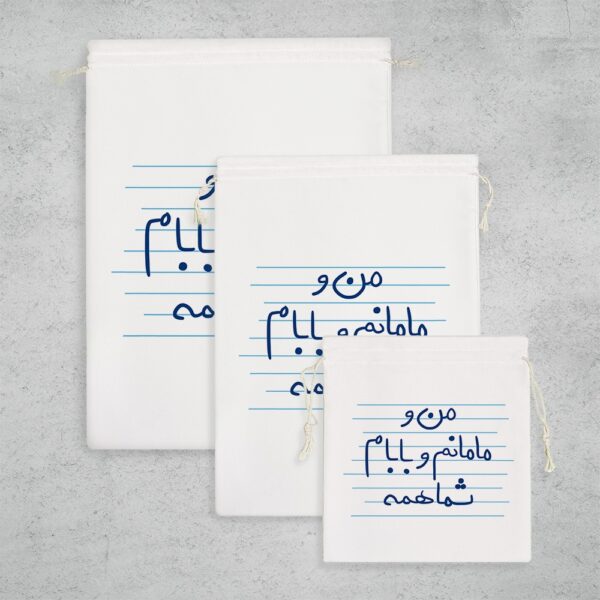 و
بابام
من و
مامانم و بابام
من و
مامانم و بابام
شما همه